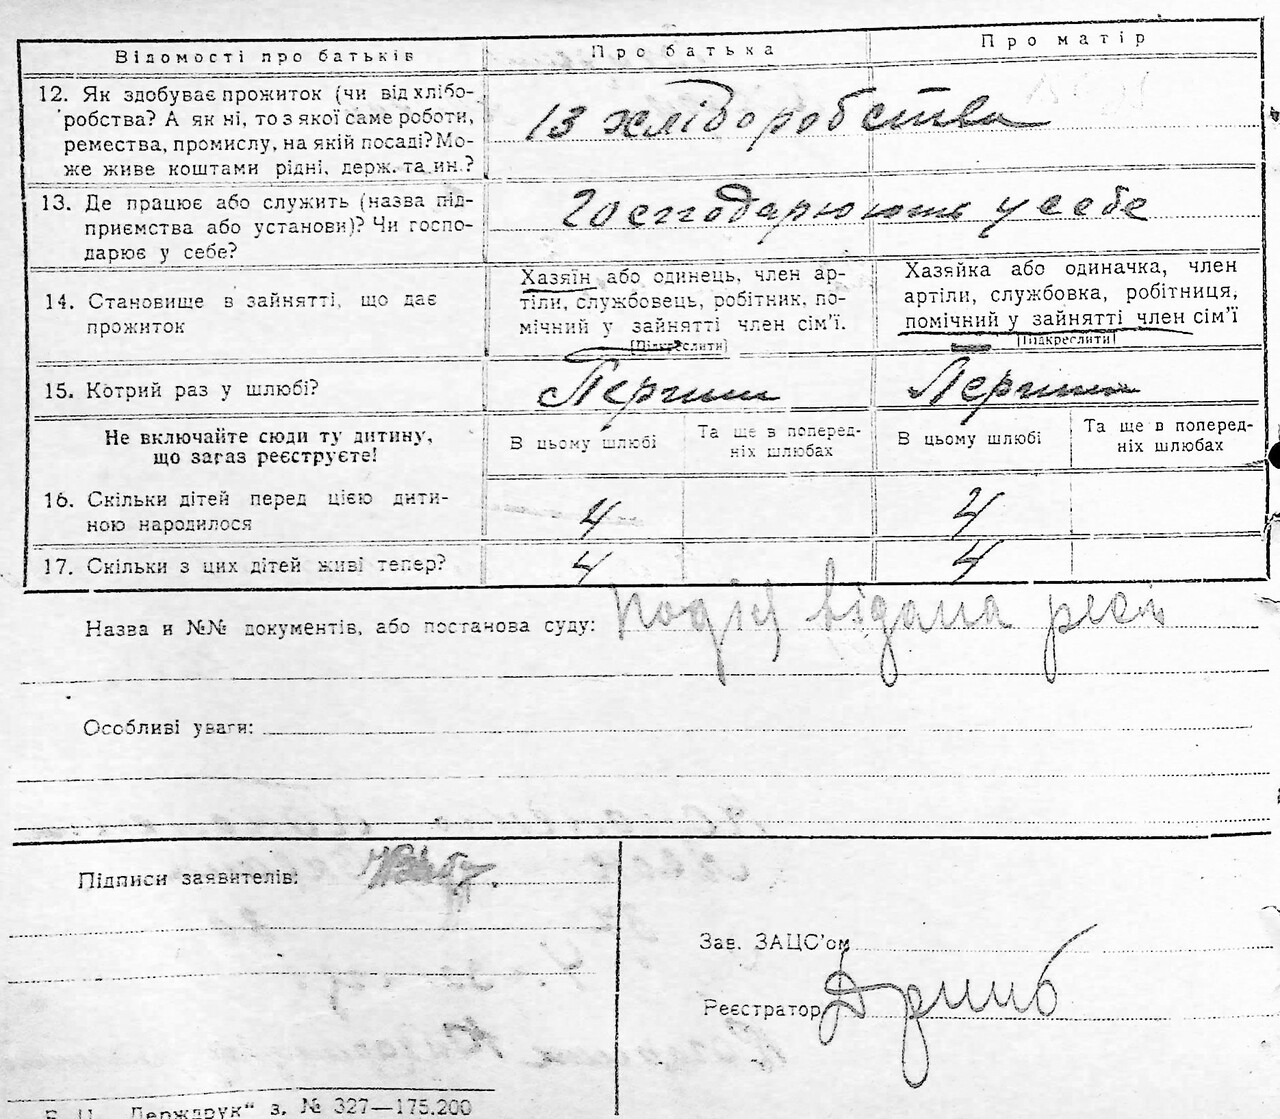 Відомості про батьків
Про батька
Про матір
12. Як здобуває прожиток (чи від хлібо-
робства? А як ні, то з якої саме роботи,
ремества, промислу, на якій посаді? Мо-
же живе коштами рідні, держ. та ин.?
Із хліборобства
13. Де працює або служить (назва під-
приємства або установи)? Чи госпо-
дарює у себе?
Господарюють у себе
14. Становище в зайнятті, що дає
прожиток
Хазяїн або одинець, член ар-
тіли, службовець, робітник, по-
мічний у зайнятті член сім'ї.
[Підкреслити]
Хазяйка або одиначка, член
артіли, службовка, робітниця,
помічний у зайнятті член сім'ї
[Підкреслити]
15. Котрий раз у шлюбі?
Первий
Первий
Не включайте сюди ту дитину,
що загаз реєструєте!
В цьому шлюбі
Та ще в поперед-
ніх шлюбах
В цьому шлюбі
Та ще в поперед-
ніх шлюбах
16. Скільки дітей перед цією дити-
ною народилося
4
4
17. Скільки з цих дітей живі тепер?
4
4
Назва й №№ документів, або постанова суду:
Особливі уваги:
Підписи заявителів:
Зав. ЗАЦС'ом
Реєстратор
„Держдрук" з. № 327—175.200